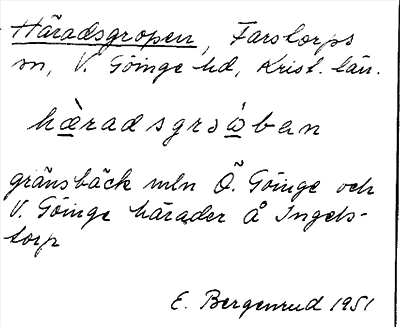 Häradsgropen, Farstorps
sn, V. Göinge hd, Krist. län.
hæradsgrωban
gränsbäck mln Ö. Göinge och
V. Göinge härader å Ingels-
torp
E. Bergenrud 1951